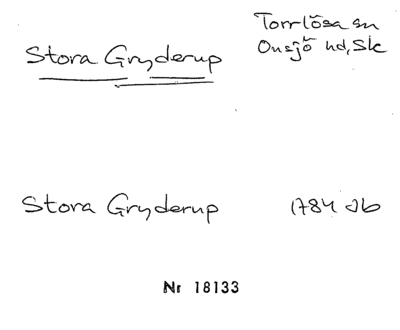 Torrlösa sn
Stora Gryderup Onsjö hd, Sk
Stora Gryderup 1784 Jb
Nr 18133